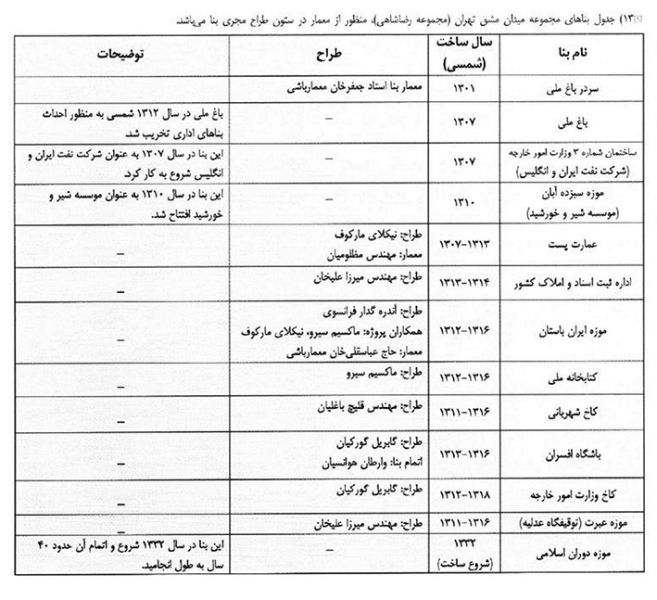 ۱۳) جدول بناهای مجموعه میدان مشق تهران (مجموعه رضاشاهی)، منظور از معمار در ستون طراح مجری بنا می‌باشد.
نام بنا
سال ساخت
(شمسی)
طراح
توضیحات
سردر باغ ملی
۱۳۰۱
معمار بنا استاد جعفرخان معمارباشی
باغ ملی
۱۳۰۷
–
باغ ملی در سال ۱۳۱۲ شمسی به منظور احداث
بناهای اداری تخریب شد.
ساختمان شماره ۳ وزارت امور خارجه
(شرکت نفت ایران و انگلیس)
۱۳۰۷
–
این بنا در سال ۱۳۰۷ به عنوان شرکت نفت ایران و
انگلیس شروع به کار کرد.
موزه سیزده آبان
(موسسه شیر و خورشید)
۱۳۱۰
–
این بنا در سال ۱۳۱۰ به عنوان موسسه شیر و
خورشید افتتاح شد.
عمارت پست
۱۳۰۷-۱۳۱۳
طراح: نیکلای مارکوف
معمار: مهندس مظلومیان
–
اداره ثبت اسناد و املاک کشور
۱۳۱۳-۱۳۱۴
طراح: مهندس میرزا علیخان
–
موزه ایران باستان
۱۳۱۲-۱۳۱۶
طراح: آندره گدار فرانسوی
همکاران پروژه: ماکسیم سیرو، نیکلای مارکوف
معمار: حاج عباسقلی‌خان معمارباشی
–
کتابخانه ملی
۱۳۱۲-۱۳۱۶
طراح: ماکسیم سیرو
–
کاخ شهربانی
۱۳۱۱-۱۳۱۶
طراح: مهندس قلیچ باغلیان
–
باشگاه افسران
۱۳۱۳-۱۳۱۶
طراح: گابریل گورکیان
اتمام بنا: وارطان هوانسیان
–
کاخ وزارت امور خارجه
۱۳۱۲-۱۳۱۸
طراح: گابریل گورکیان
–
موزه عبرت (توقیفگاه عدلیه)
۱۳۱۱-۱۳۱۶
طراح: مهندس میرزا علیخان
–
موزه دوران اسلامی
۱۳۳۲
(شروع ساخت)
–
این بنا در سال ۱۳۳۲ شروع و اتمام آن حدود ۴۰
سال به طول انجامید.